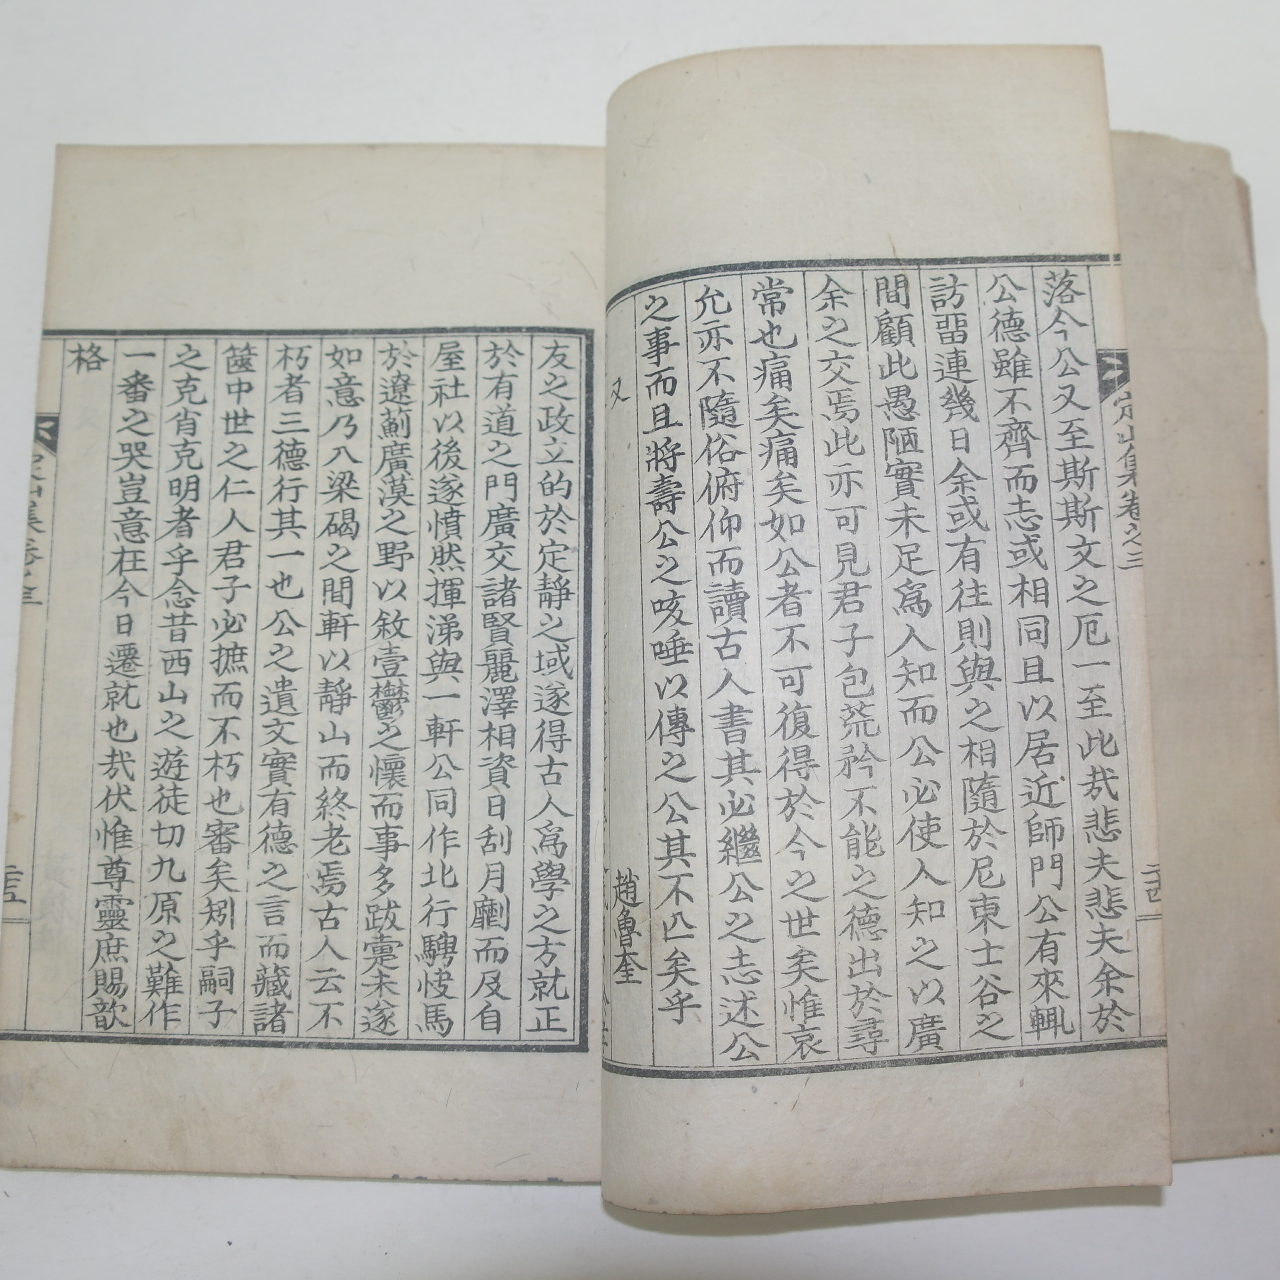 定山集卷之三
二十四
落今公又至斯斯文之厄一至此哉悲夫悲夫余於
公德雖不齊而志或相同且以居近師門公有來輒
訪畱連幾日余或有往則與之相隨於尼東士谷之
間顧此愚陋實未足爲人知而公必使人知之以廣
余之交焉此亦可見君子包荒矜不能之德出於尋
常也痛矣痛矣如公者不可復得於今之世矣惟哀
允亦不隨俗俯仰而讀古人書其必繼公之志述公
之事而且將壽公之咳唾以傳之公其不亾矣乎
又
趙魯奎
友之政立的於定靜之域遂得古人爲學之方就正
於有道之門廣交諸賢麗澤相資日刮月劘而及自
屋社以後遂憤然揮涕與一軒公同作北行騁快馬
於遼薊廣漠之野以敘壹鬱之懷而事多跋疐未遂
如意乃入梁碣之間軒以靜山而終老焉古人云不
朽者三德行其一也公之遺文實有德之言而藏諸
篋中世之仁人君子必摭而不朽也審矣矧乎嗣子
之克肖克明者乎念昔西山之遊徒切九原之難作
一番之哭豈意在今日遷就也哉伏惟尊靈庶賜歆
格
定山集卷之三
二十五